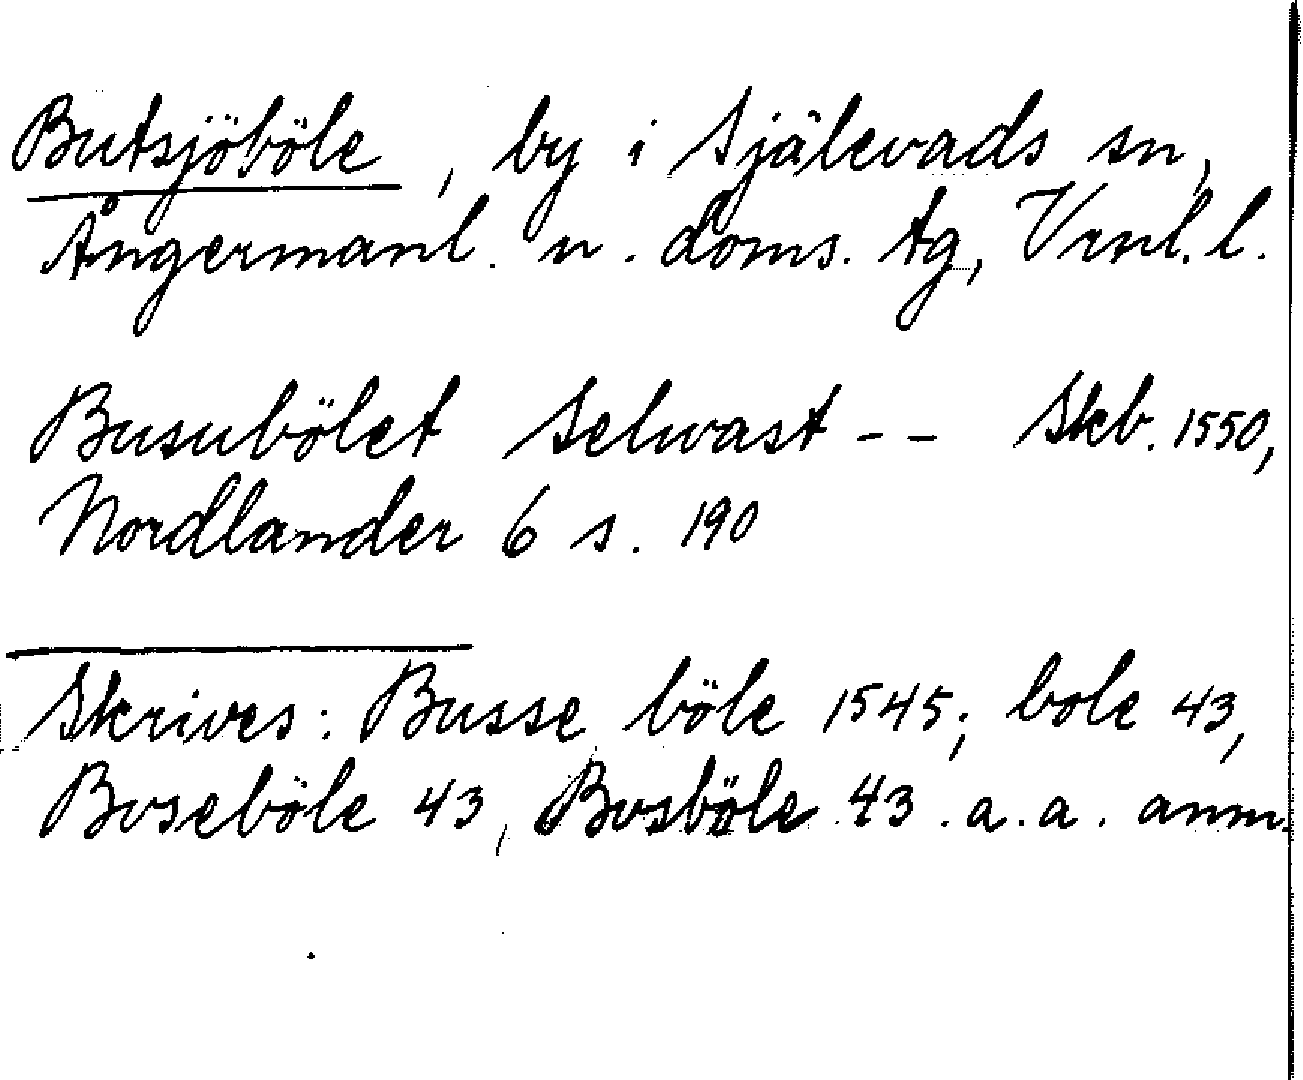 Butsjöböle, by i Själevads sn,
Ångermanl. n. doms. tg, Vrnl. l.
Busubölet Selwast -- Skb. 1550,
Nordlander 6 s. 190
Skrives: Busse böle 1545; bole 43,
Boseböle 43, Bosböle 43. a. a. anm.